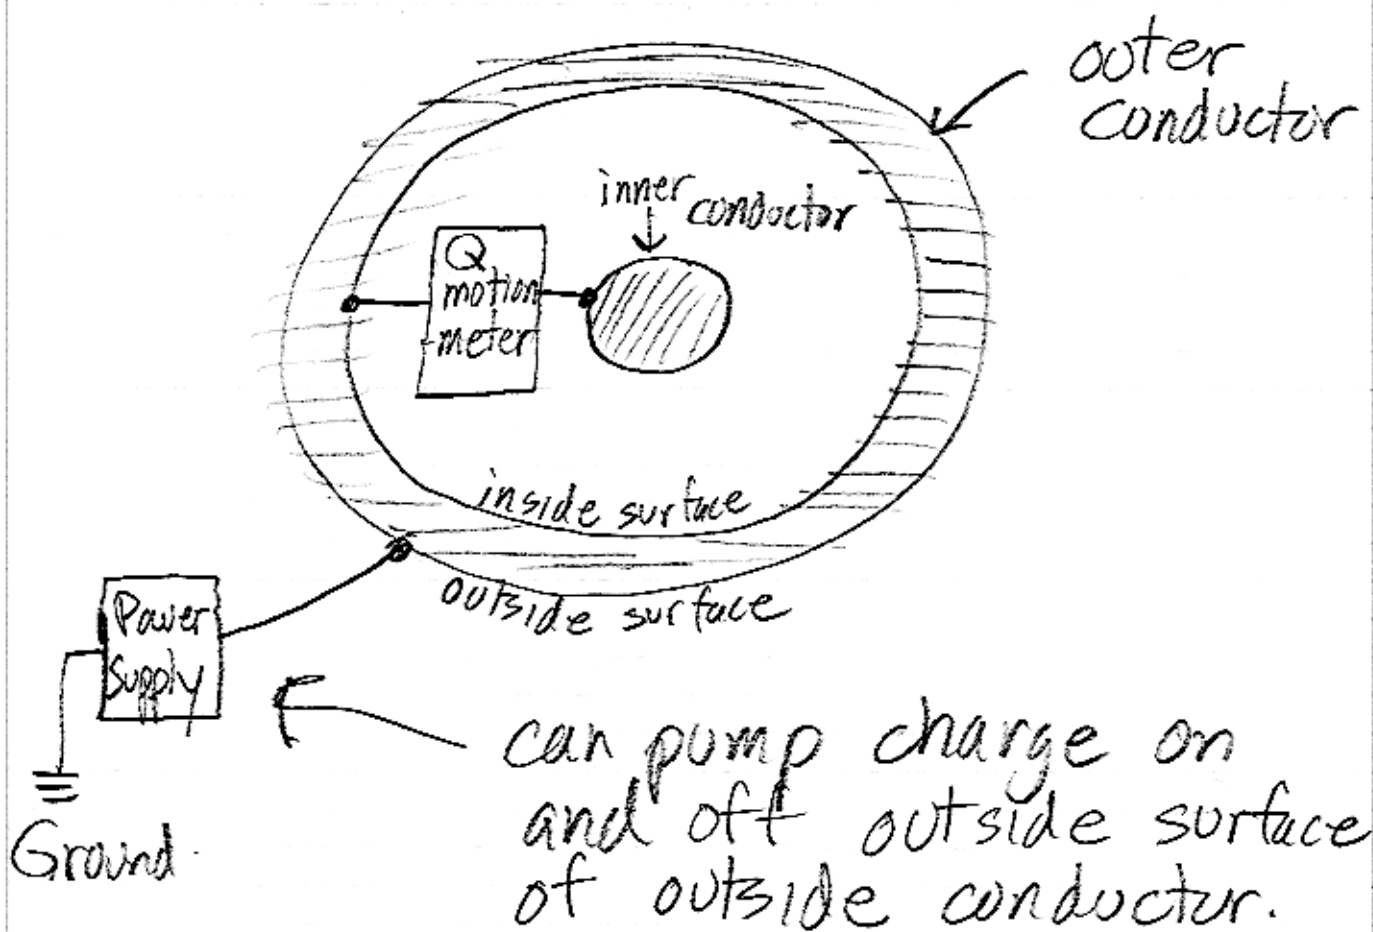 outer
conductor
inner
conductor
Q
motion
meter
inside surface
outside surface
Power
Supply
Ground
can pump charge on
and off outside surface
of outside conductor.